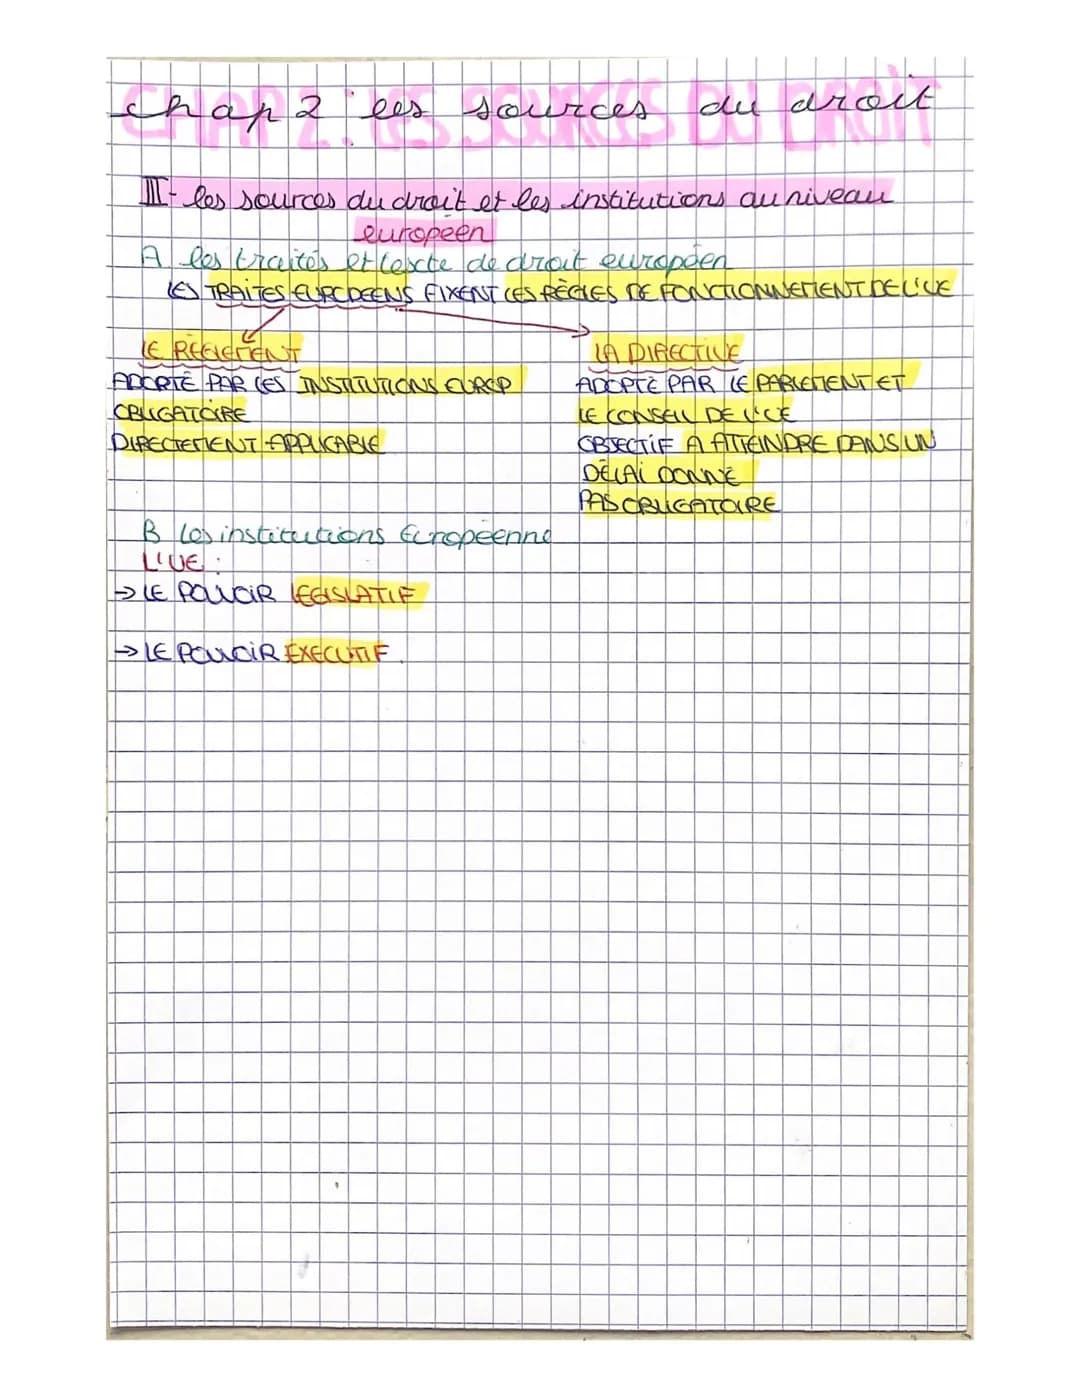 chap 2 : les sources du droit
III- les sources du droit et les institutions au niveau
européen
A les traités et texte de droit européen
LES TRAITES EUROPEENS FIXENT LES RÈGLES DE FONCTIONNEMENT DE L'UE
LE REGLEMENT
LA DIRECTIVE
ADOPTÉ PAR LES INSTITUTIONS EUROP
ADOPTÉ PAR LE PARLEMENT ET
OBLIGATOIRE
LE CONSEIL DE L'UE
DIRECTEMENT APPLICABLE
OBJECTIF A ATTEINDRE DANS UN
DÉLAI DONNÉ
PAS OBLIGATOIRE
B les institutions Européenne
L'UE :
→ LE POUVOIR LEGISLATIF
→ LE POUVOIR EXECUTIF.